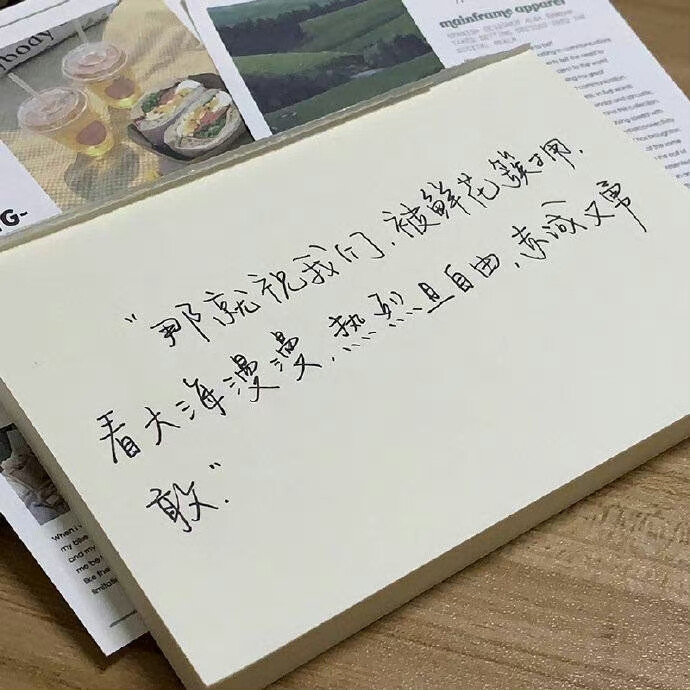 body
mainframe apparel
G-
"那就祝我们，被鲜花簇拥，
看大海漫漫，热烈且自由，赤诚又勇
敢"
When i
my bike
and my
me be
like that